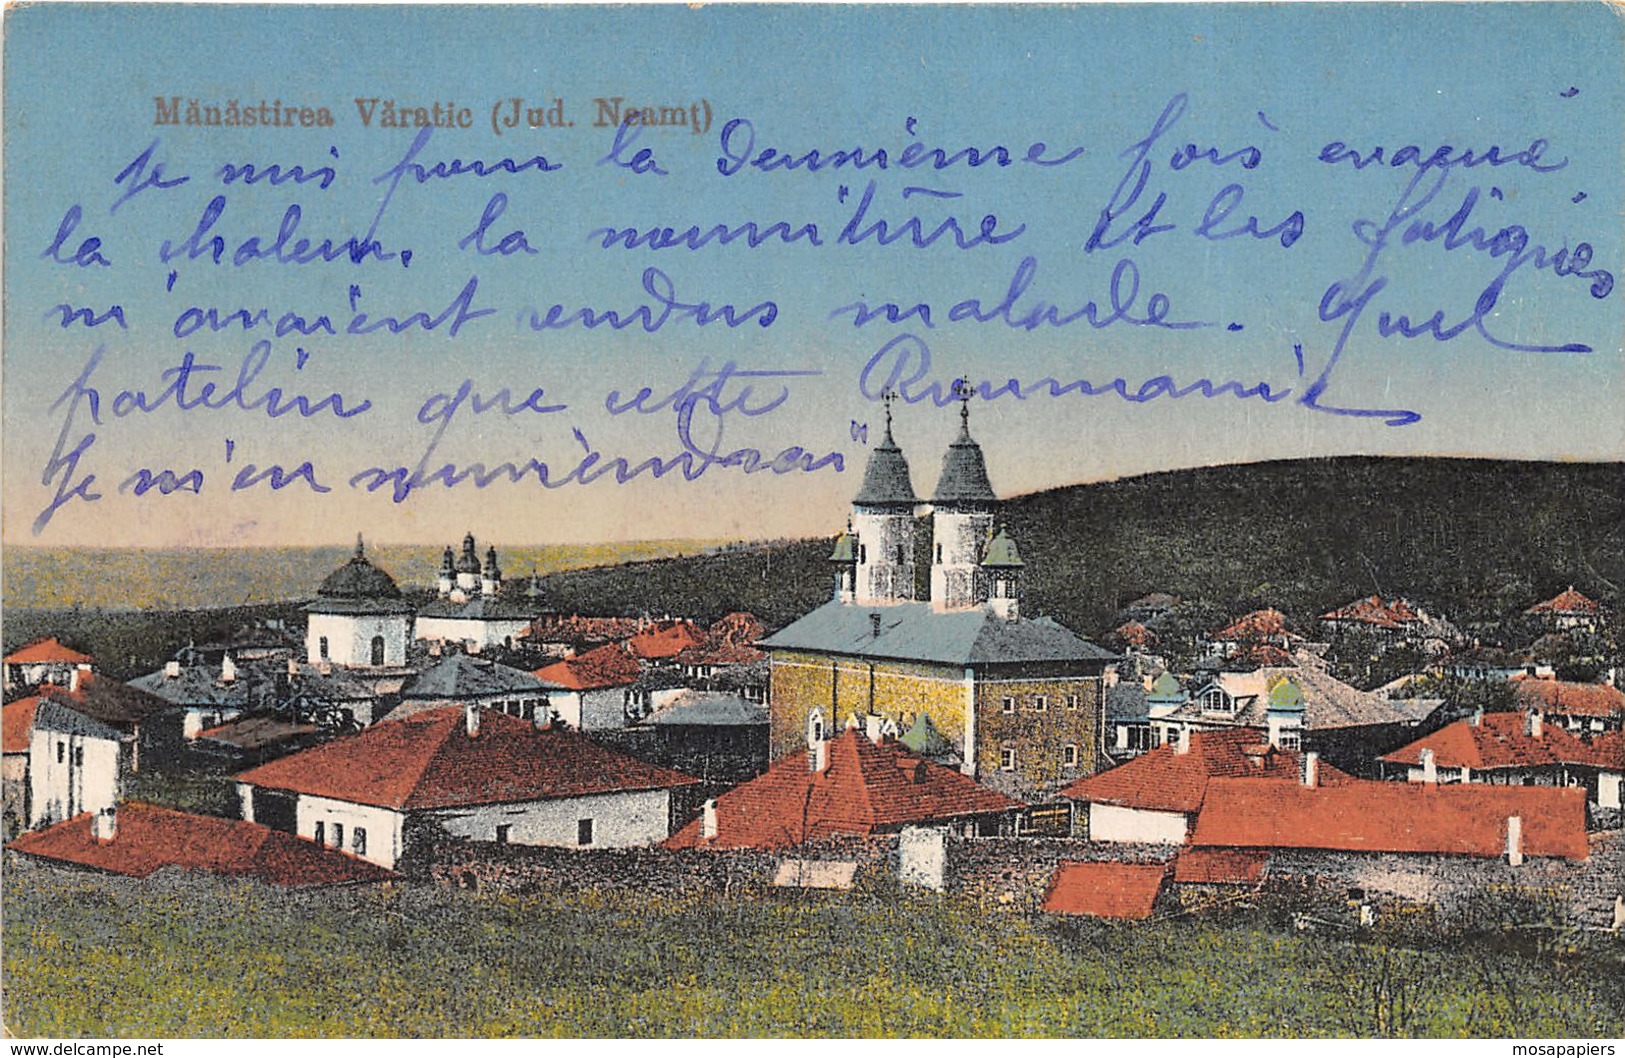 Mănăstirea Văratic (Jud. Neamţ)
Je suis pour la Deuxième fois evacué
la chaleur. la nourriture Et les fatigues
m'avaient rendus malade. Quel
patelin que cette Roumanie
Je m'en souviendrai"
www.delcampe.net
mosapapiers